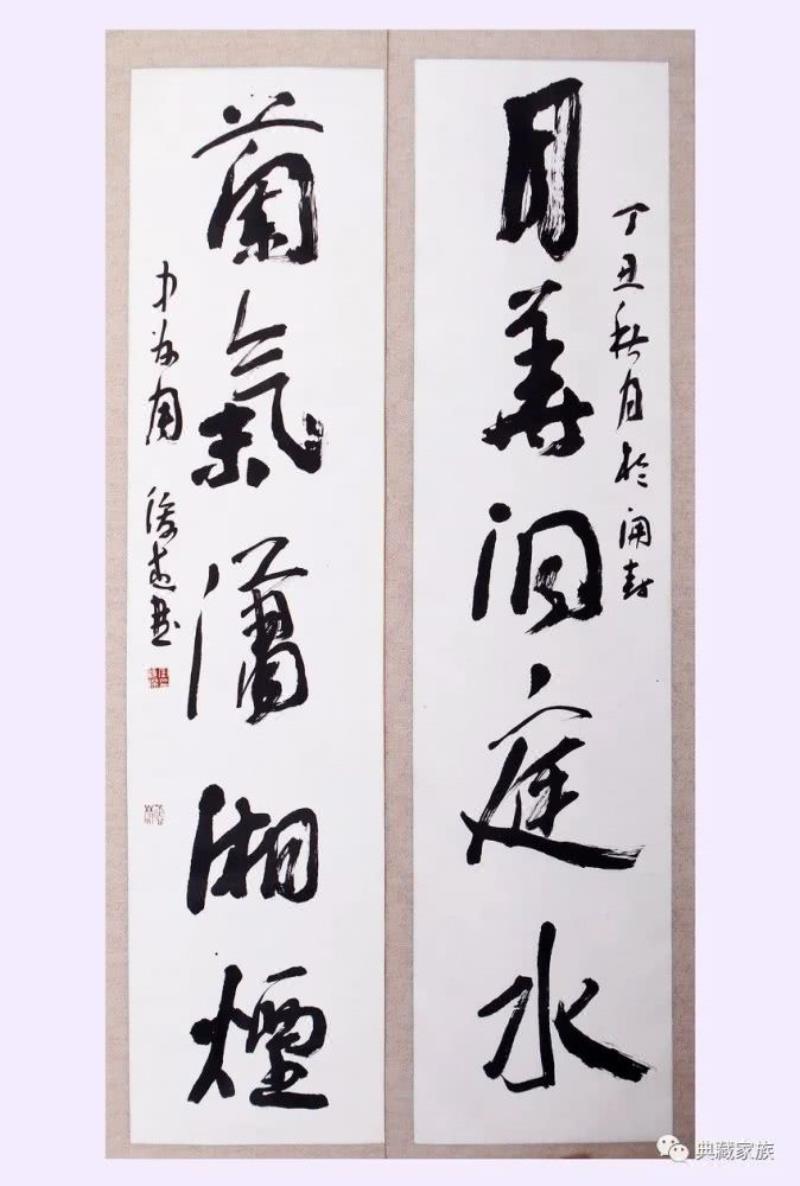 月華洞庭水
丁丑秋月於開封
蘭氣瀟湘煙
周俊杰書
典藏家族